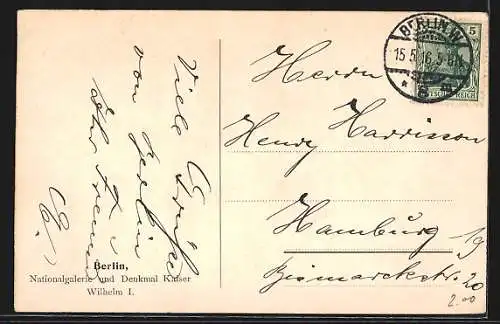 Viele Grüße
von Berlin
Ihr
Berlin,
Nationalgalerie und Denkmal Kaiser
Wilhelm I.
BERLIN.W.
15.5.16.5-6N
* 8
5
DEUTSCHES REICH
Herrn
Henry Harrisson
Hamburg 19
Bismarckstr. 20
2.00